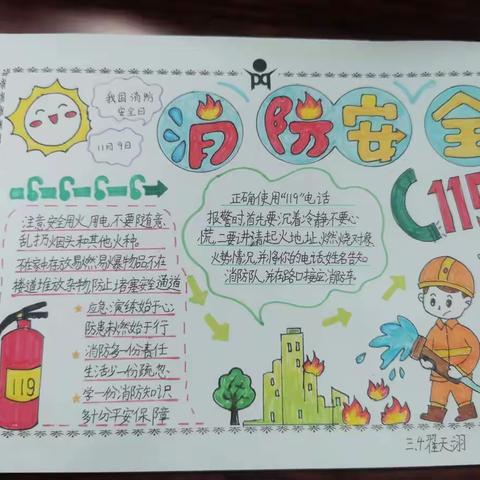 消防安全
我国消防
安全日
11月9日
119
正确使用"119"电话
报警时,首先要沉着冷静不要心
慌,二要讲清起火地址,燃烧对象
火势情况,并将你的电话姓名告知
消防队,并在路口接应消防车
注意安全用火,用电,不要随意
乱扔烟头和其他火种
不在家中存放易燃易爆物品不在
楼道堆放杂物防止堵塞安全通道
应急演练始于心
防患未然始于行
消防多一份责任
生活少一份疏忽
学一份消防知识
多十分平安保障
119
三.4翟天诩